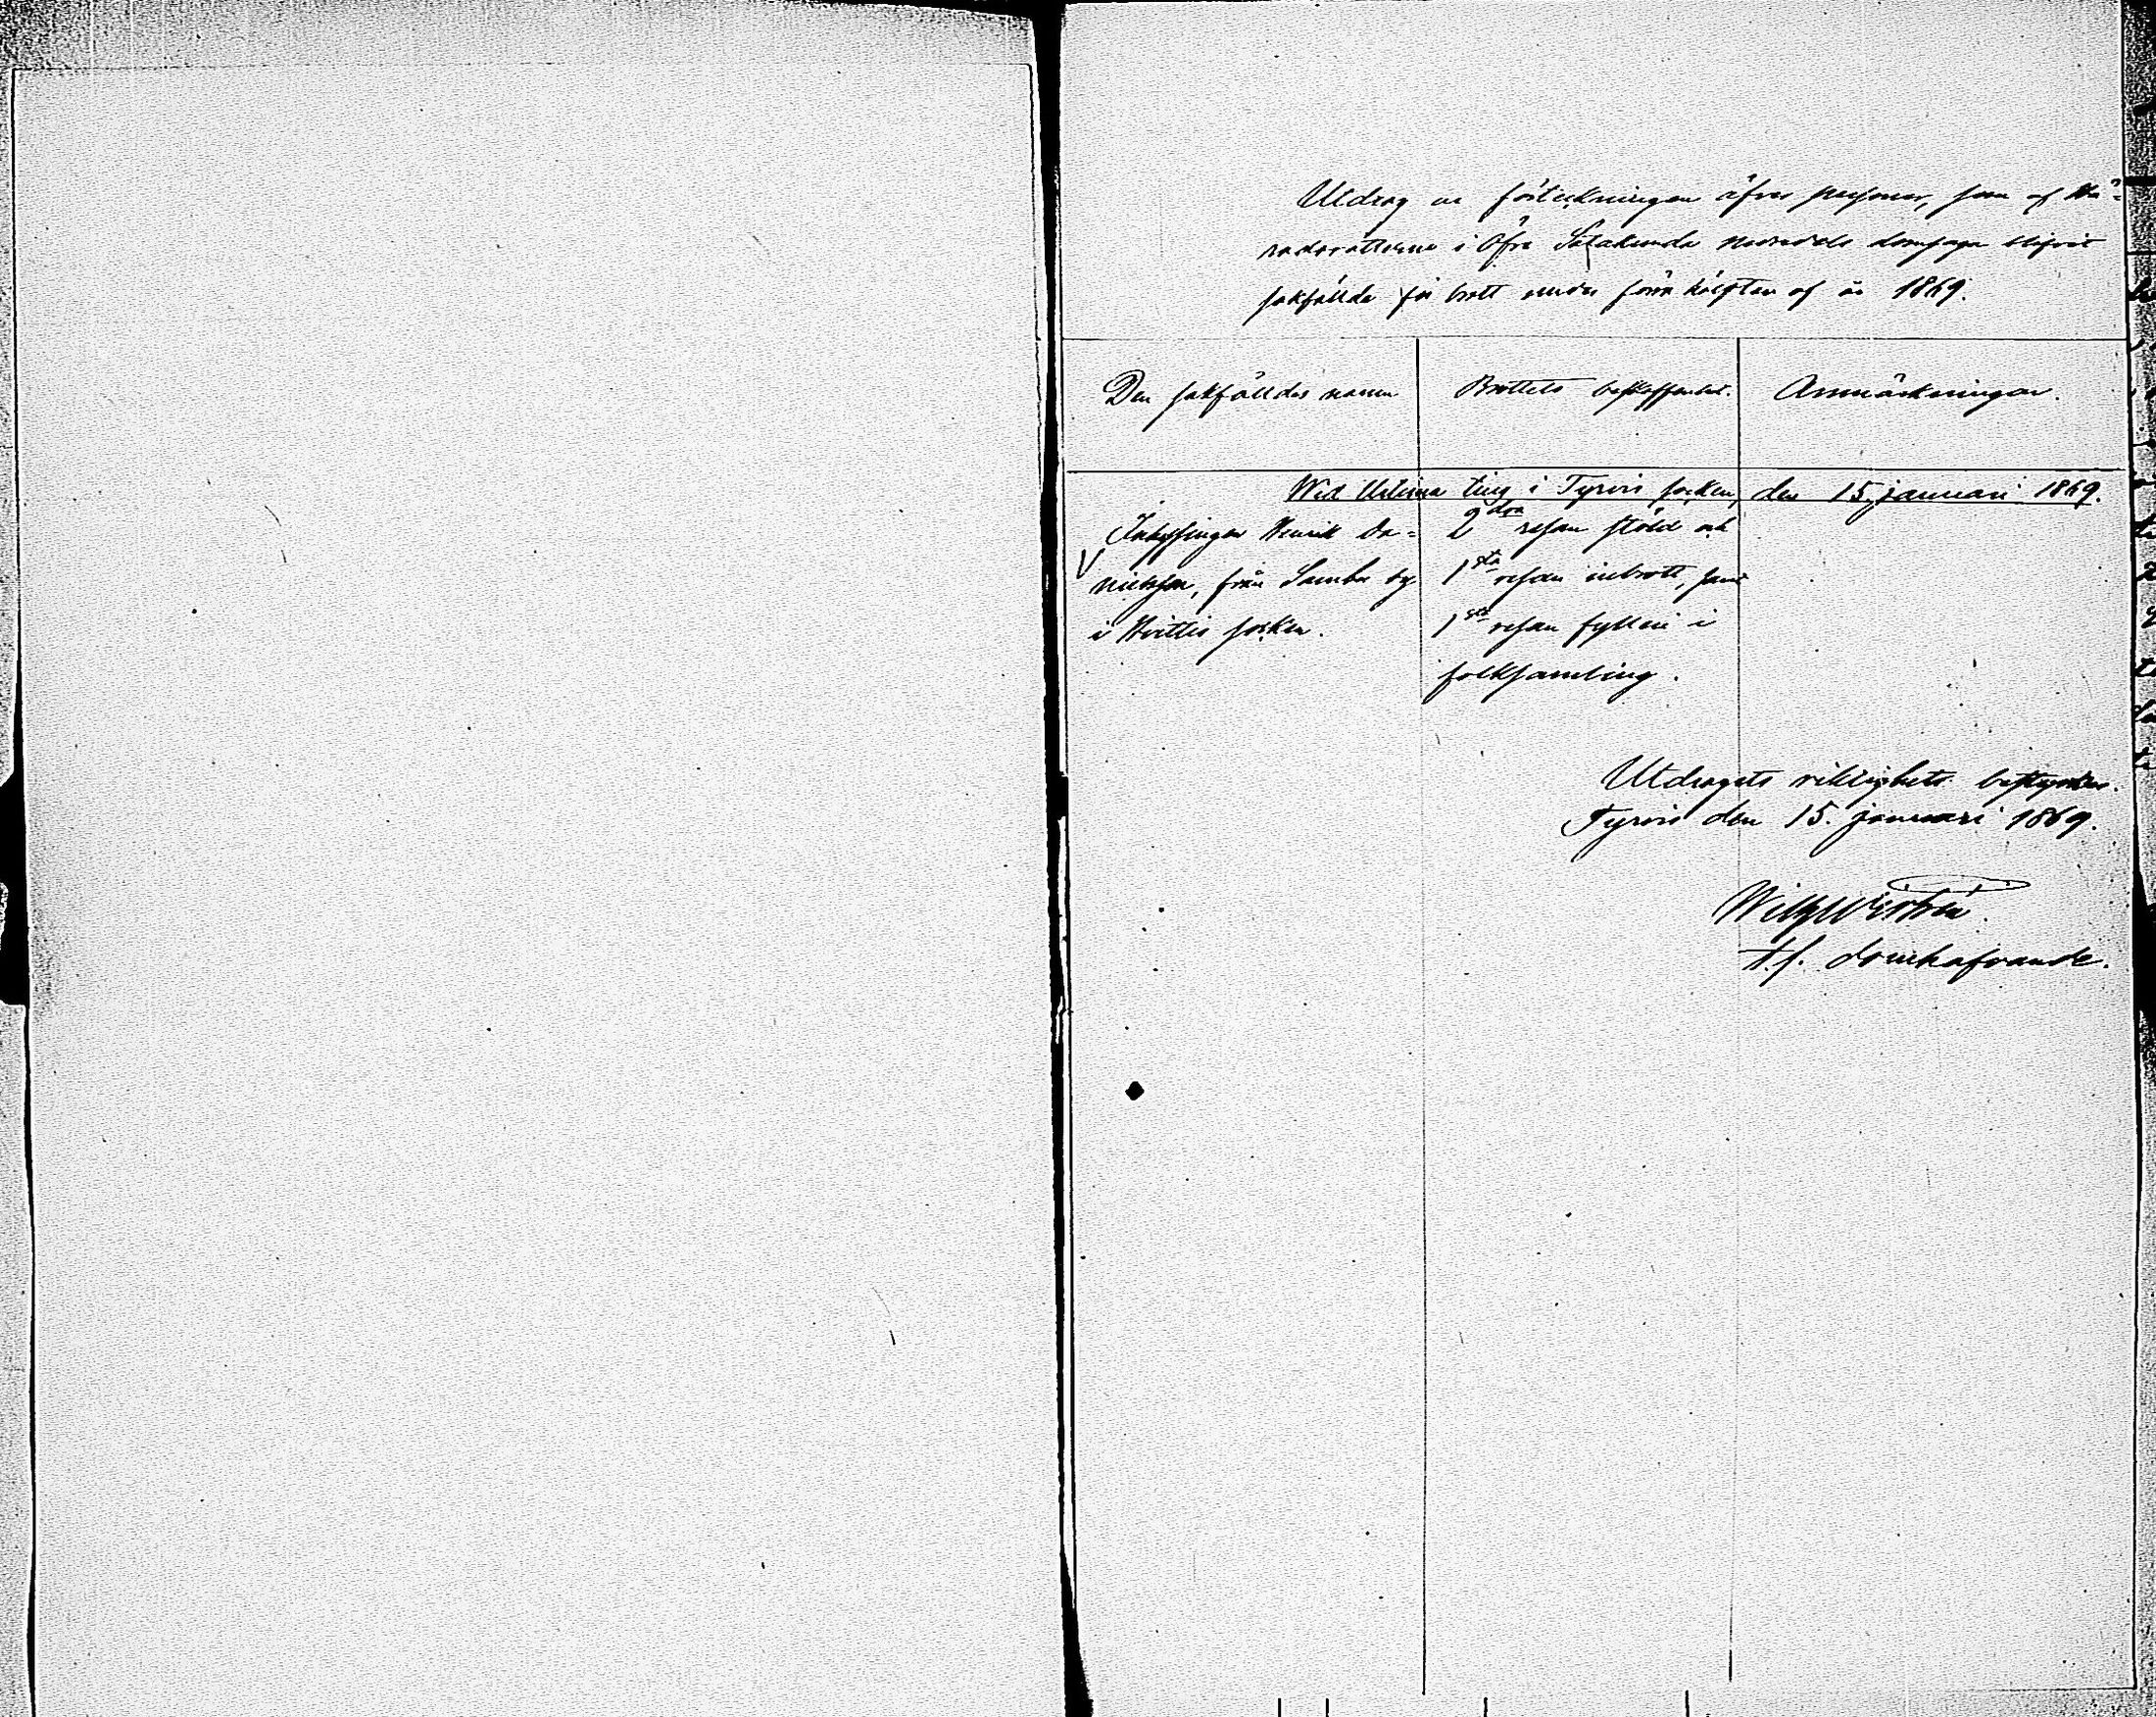 Utdrag ur förteckningen öfver personer, som af Hä-
radsrätterna i Öfra Satakunda nedredels domsaga blifvit
sakfällda för brott under förra hälften af år 1869.
Den sakfälldes namn
Brottets beskaffenhet.
Anmärkningar.
Wid Urtima ting i Tyrvis socken, den 15 januari 1869.
Inhysingen Henrik Da-
nielsson, från Sambu by
i Hvittis socken.
2dra resan stöld och
1sta resan inbrott, samt
1sta resan fylleri i
folksamling.
Utdragets riktighet bestyrkes.
Tyrvis den 15. januari 1869.
t.f. domhafvande.